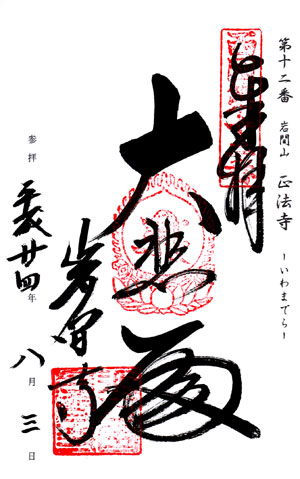 第十二番 岩間山 正法寺 -いわまでら-
奉拝
大悲殿
岩間寺
参拝 平成廿四年 八月 三日